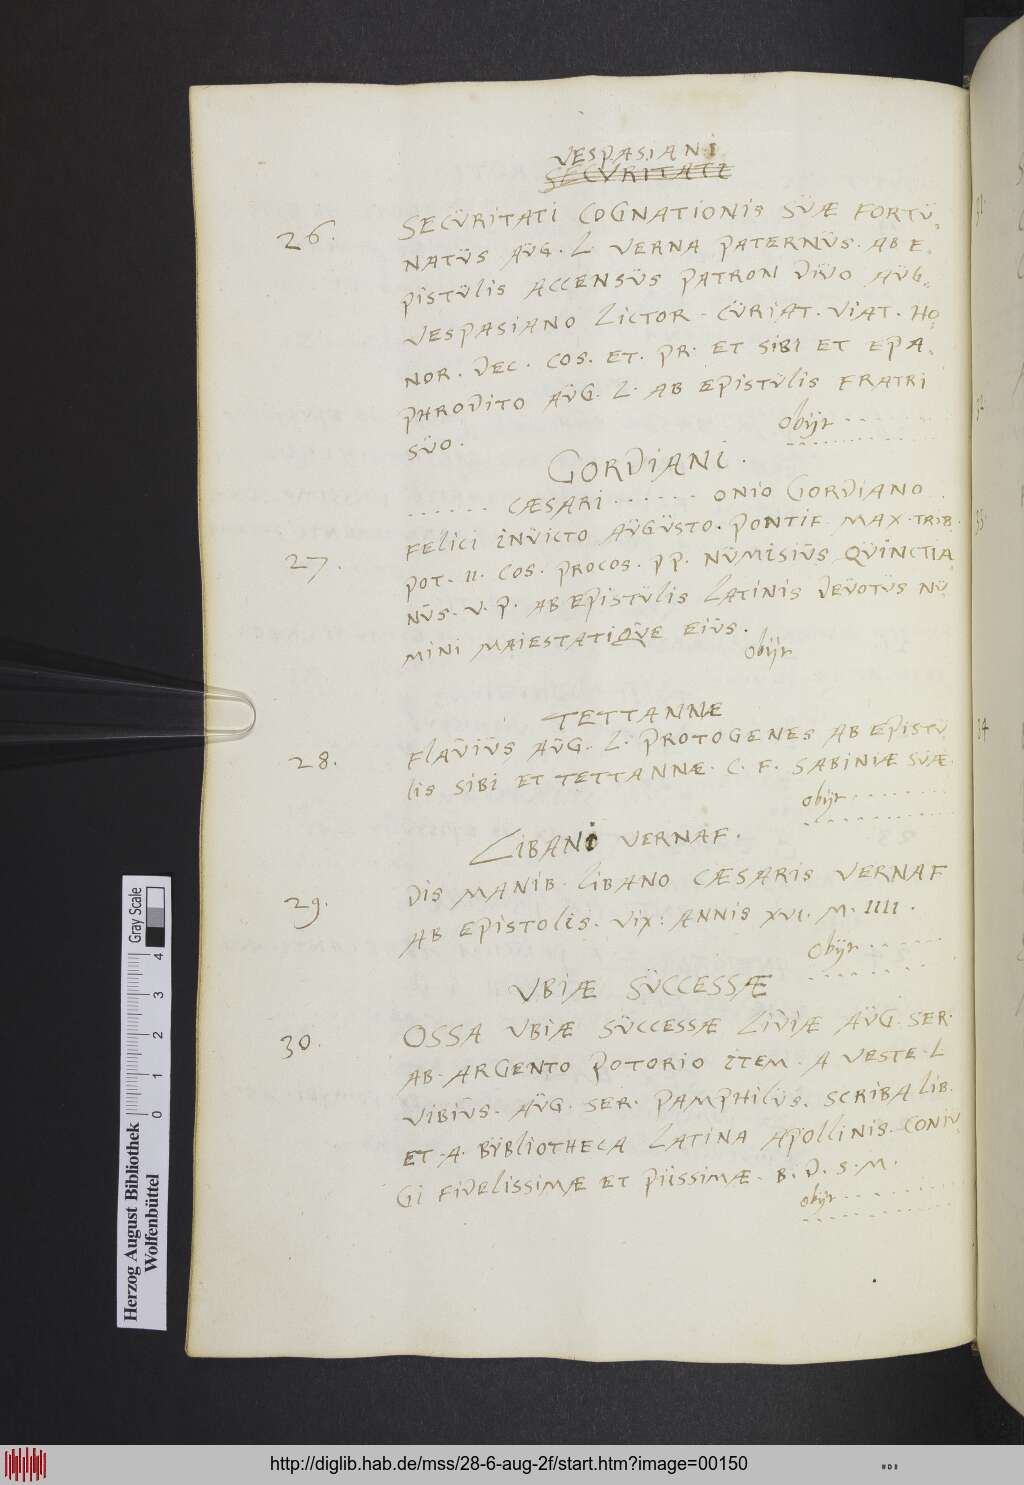 VESPASIANI
SECVRITATI
26. SECÜRITATI COGNATIONIS SÜÆ FORTÜ-
NATÜS AÜG. L. VERNA PATERNÜS. AB E-
PISTÜLIS ACCENSÜS PATRON DIVO AÜG.
VESPASIANO LICTOR. CÜRIAT. VIAT. HO-
NOR. DEC. COS. ET. PR. ET SIBI ET EPA-
PHRODITO AÜG. L. AB EPISTÜLIS FRATRI
SÜO.
obijt
GORDIANI.
...... CÆSARI ...... ONIO GORDIANO
27. FELICI INVICTO AÜGÜSTO. PONTIF. MAX. TRIB.
POT. II. COS. PROCOS. PP. NÜMISIÜS QÜINCTIA-
NÜS. V. P. AB EPISTÜLIS LATINIS DEVOTÜS NÜ-
MINI MAIESTATIQVE EIÜS.
obijt
TETTANNÆ
28. FLAVIÜS AÜG. L. PROTOGENES AB EPISTÜ
LIS SIBI ET TETTANNÆ. C. F. SABINIÆ SÜÆ.
obijt
LIBANI VERNAF.
29. DIS MANIB. LIBANO CÆSARIS VERNAF
AB EPISTOLIS. VIX: ANNIS XVI. M. IIII.
obijt
VBIÆ SÜCCESSÆ
30. OSSA VBIÆ SÜCCESSÆ LIVIÆ AÜG. SER.
AB. ARGENTO POTORIO ITEM. A VESTE. L
VIBIÜS. AÜG. SER. PAMPHILÜS. SCRIBA LIB.
ET. A. BYBLIOTHECA LATINA APOLLINIS. CONIV-
GI FIDELISSIMÆ ET PIISSIMÆ. B. D. S. M.
obijt
31
32
33
34
Gray Scale
0 1 2 3 4
Herzog August Bibliothek
Wolfenbüttel
http://diglib.hab.de/mss/28-6-aug-2f/start.htm?image=00150